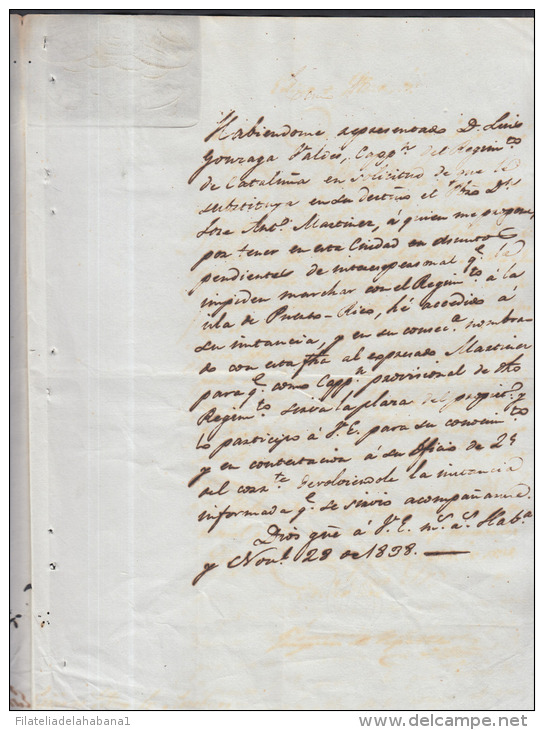 Habiendome representado D. Luis
Gonzaga Valdes, Capp.n del Regim.to
de Cataluña en solicitud de que le
substituya en su destino el Pbro D.n
Jose Ant.o Martinez, á quien me propone,
por tener en esta Ciudad
pendientes de interes personal q.e le
impiden marchar con el Regim.to á la
isla de Puerto-Rico, hé accedido á
su instancia, y en su consec.a nombra-
do con esta fha al expresado Martinez
para q.e como Capp.n provisional de dho
Regim.to sirva la plaza del propiet.o y
lo participo á V.E. para su conocim.to
y en contestacion á su oficio de 2
del corr.te devolviendole la instancia
informada q.e se sirvió acompañarme.
Dios gūe á V.E. m.s a.s Hab.a
y Nov.e 28 de 1838.
Filateliadelahabana1
http://www.delcampe.net